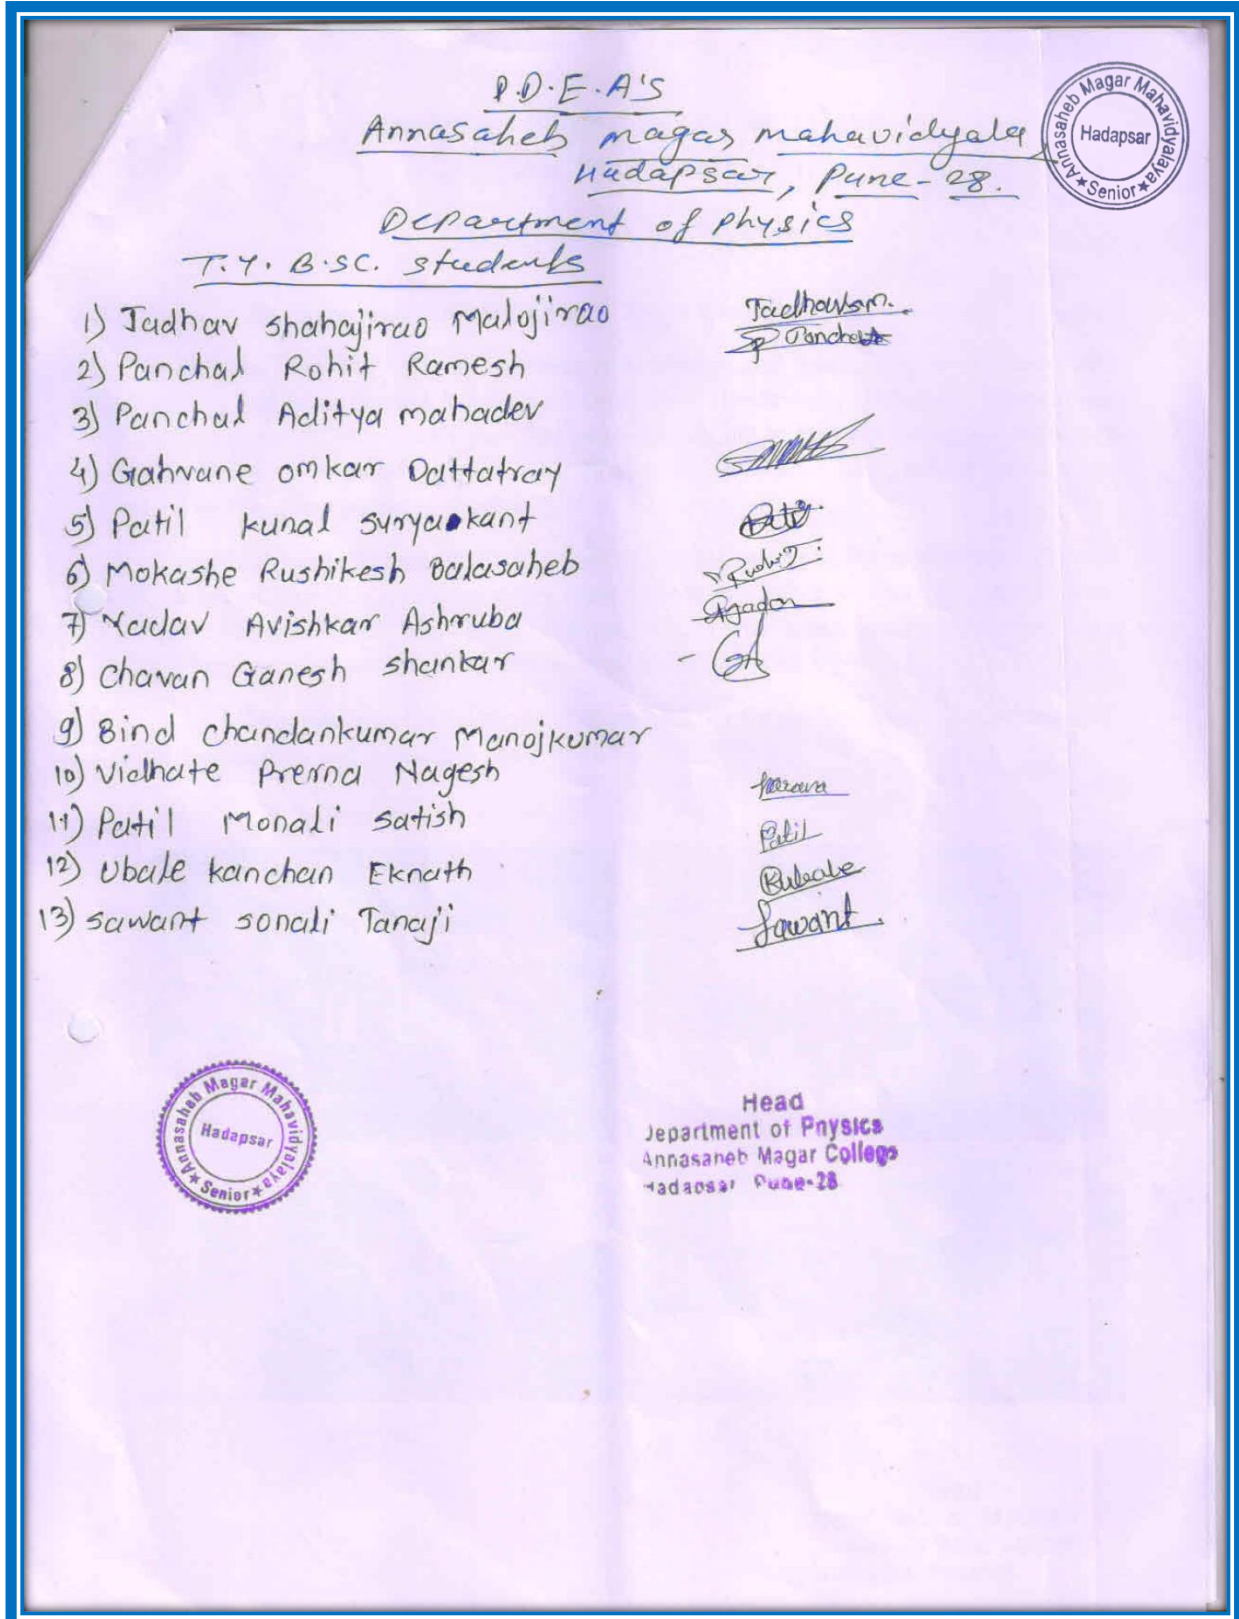 P.D.E.A'S
Annasaheb magar mahavidyala,
Hadapsar, Pune-28.
Department of Physics
T.Y. B.SC. students
1) Jadhav shahajirao Malojirao Jadhavsm.
2) Panchal Rohit Ramesh Panchal
3) Panchal Aditya mahadev
4) Gahvane omkar Dattatray
5) Patil kunal suryakant
6) Mokashe Rushikesh Balasaheb
7) Yadav Avishkar Ashruba
8) Chavan Ganesh shankar
9) Bind chandankumar Manojkumar
10) Vidhate Prerna Nagesh
11) Patil Monali satish Patil
12) Ubale kanchan Eknath
13) sawant sonali Tanaji Sawant.
Annasaheb Magar Mahavidyalaya
Hadapsar
★ Senior ★
Annasaheb Magar Mahavidyalaya
Hadapsar
★ Senior ★
Head
Department of Physics
Annasaheb Magar College
Hadapsar Pune-28